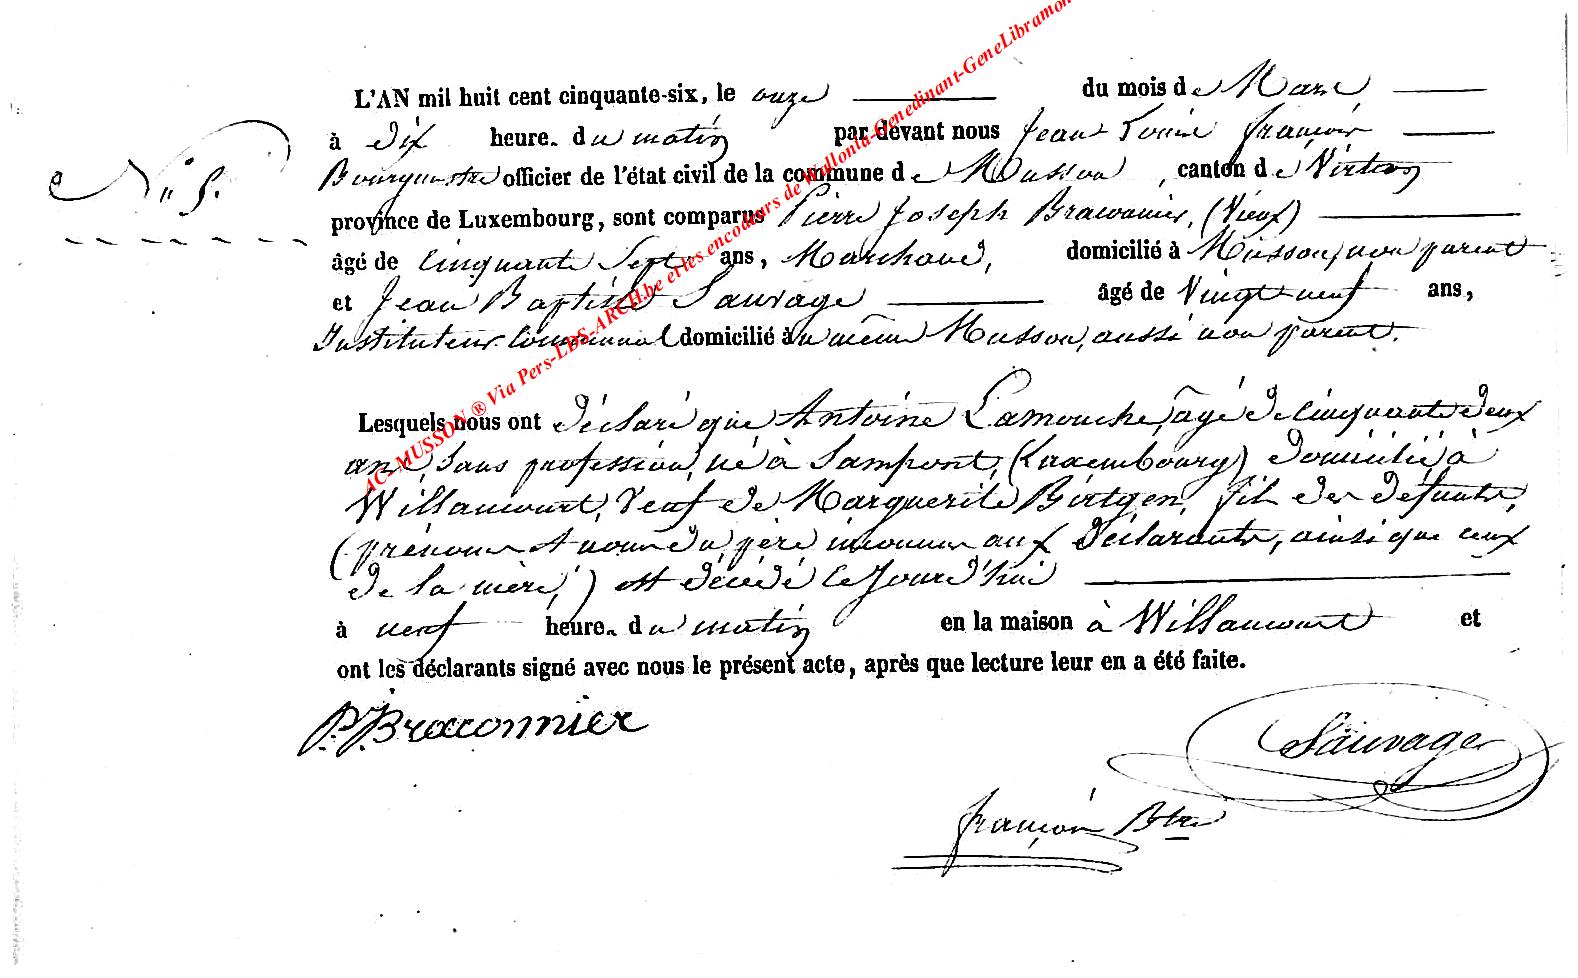 AC-MUSSON ® Via Pers-LDS-ARCH.be et les encodeurs de Wallonia-Genedinant-GeneLibramon
L'AN mil huit cent cinquante-six, le onze du mois de Mars
à dix heure. du matin par devant nous Jean Louis françois
N° 5.
Bourgmestre officier de l'état civil de la commune de Musson, canton de Virton
province de Luxembourg, sont comparus Pierre Joseph Braconnier, (Vieux)
âgé de Cinquante Sept ans, Marchand, domicilié à Musson, non parent
et Jean Baptiste Sauvage âgé de Vingt neuf ans,
Instituteur Communal domicilié au même Musson, aussi non parent.
Lesquels nous ont déclaré que Antoine Lamouche, âgé de cinquante deux
ans, sans profession, né à Sampont, (Luxembourg) domicilié à
Willancourt, Veuf de Marguerite Birtgen, fils des défunts,
(prénoms et nom du père inconnus aux déclarants, ainsi que ceux
de la mère,) est décédé ce jourd'hui
à neuf heure. du matin en la maison à Willancourt et
ont les déclarants signé avec nous le présent acte, après que lecture leur en a été faite.
P. J. Braconnier
Sauvage
françois Btre